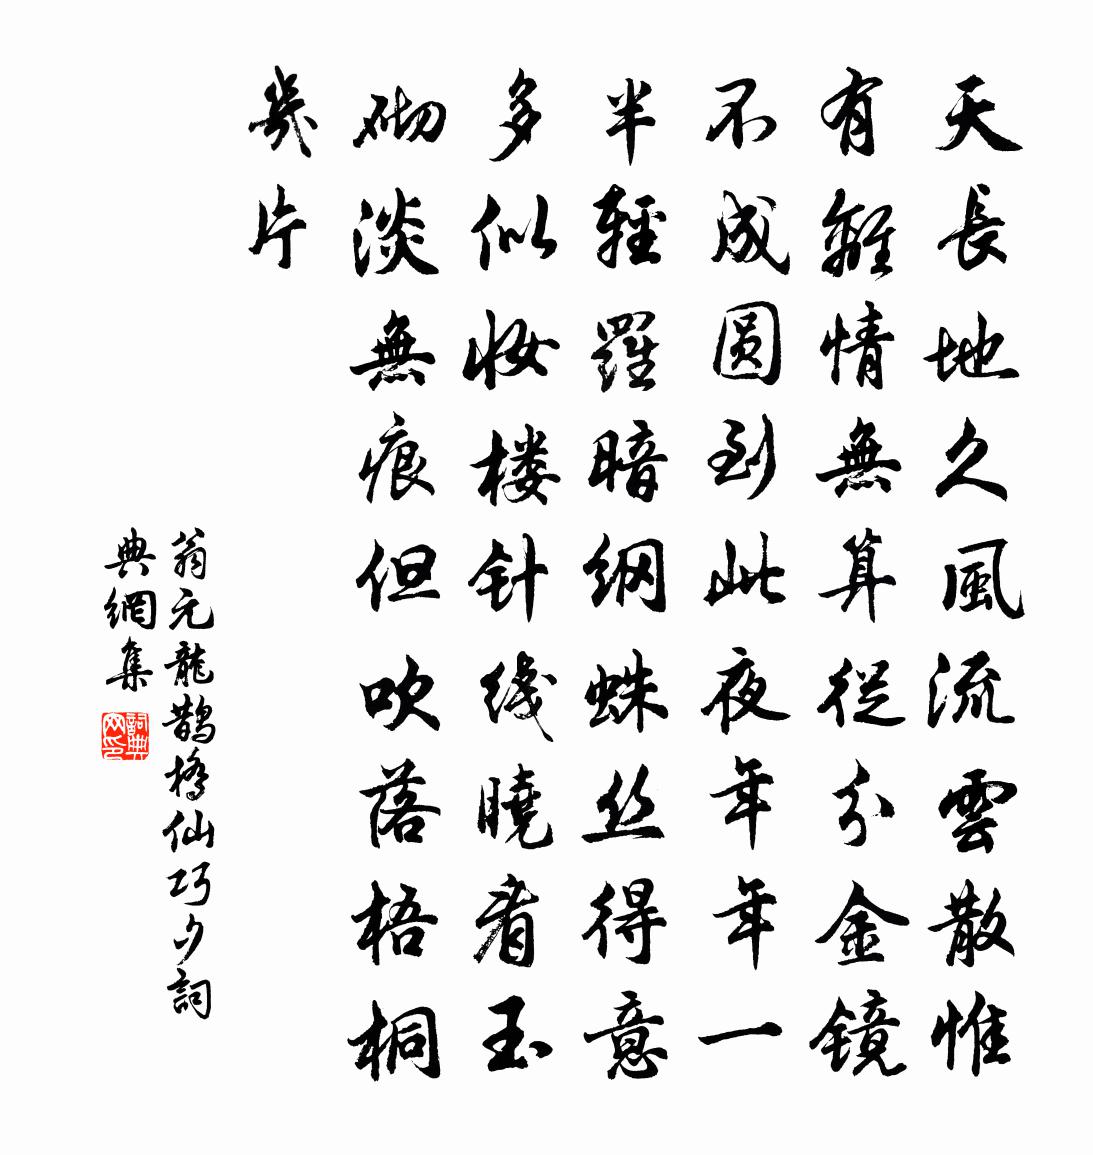 天長地久風流雲散惟
有離情無算從分金镜
不成圆到此夜年年一
半輕羅暗網蛛丝得意
多似妆楼针线曉看玉
砌淡無痕但吹落梧桐
幾片
翁元龍鹊橋仙巧夕詞
典網集
詞典网印